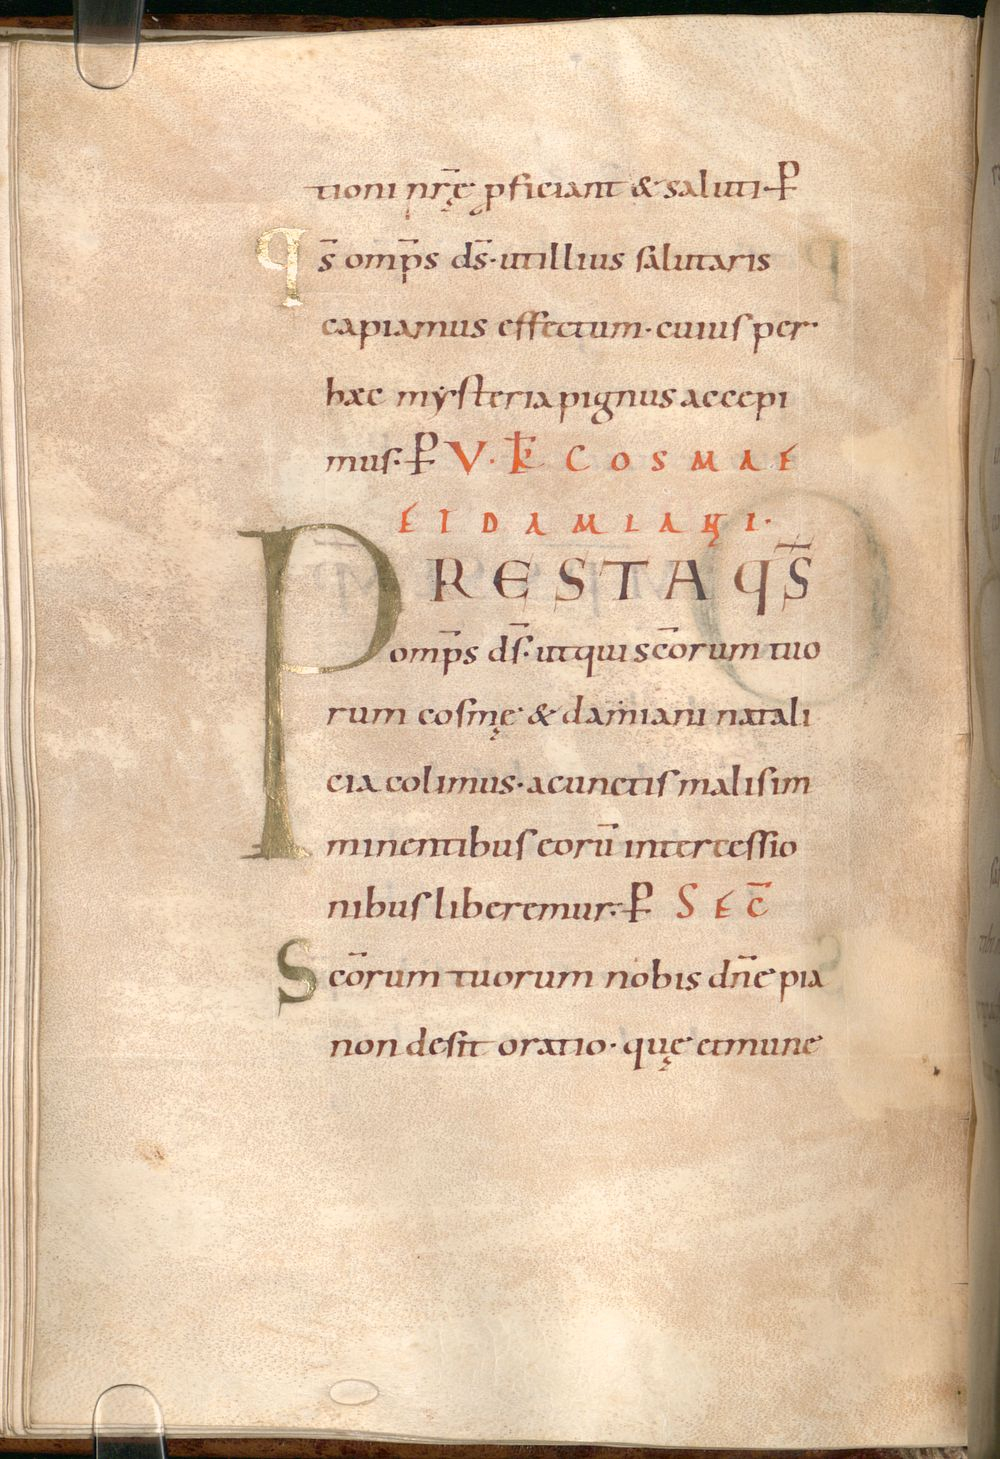 tioni nr̄ę ꝓficiant & saluti· ꝑ
qs̄ omp̄s ds̄· ut illius salutaris
capiamus effectum· cuius per
haec mysteria pignus accepi
mus· ꝑ V· k̄ COSMAE
ET DAMIANI·
PRESTA QS̄
omp̄s ds̄· ut qui sc̄orum tuo
rum cosmę & damiani natali
cia colimus· a cunctis malis im
minentibus eorū intercessio
nibus liberemur· ꝑ SEC̄
Sc̄orum tuorum nobis dn̄e pia
non desit oratio· quę et mune